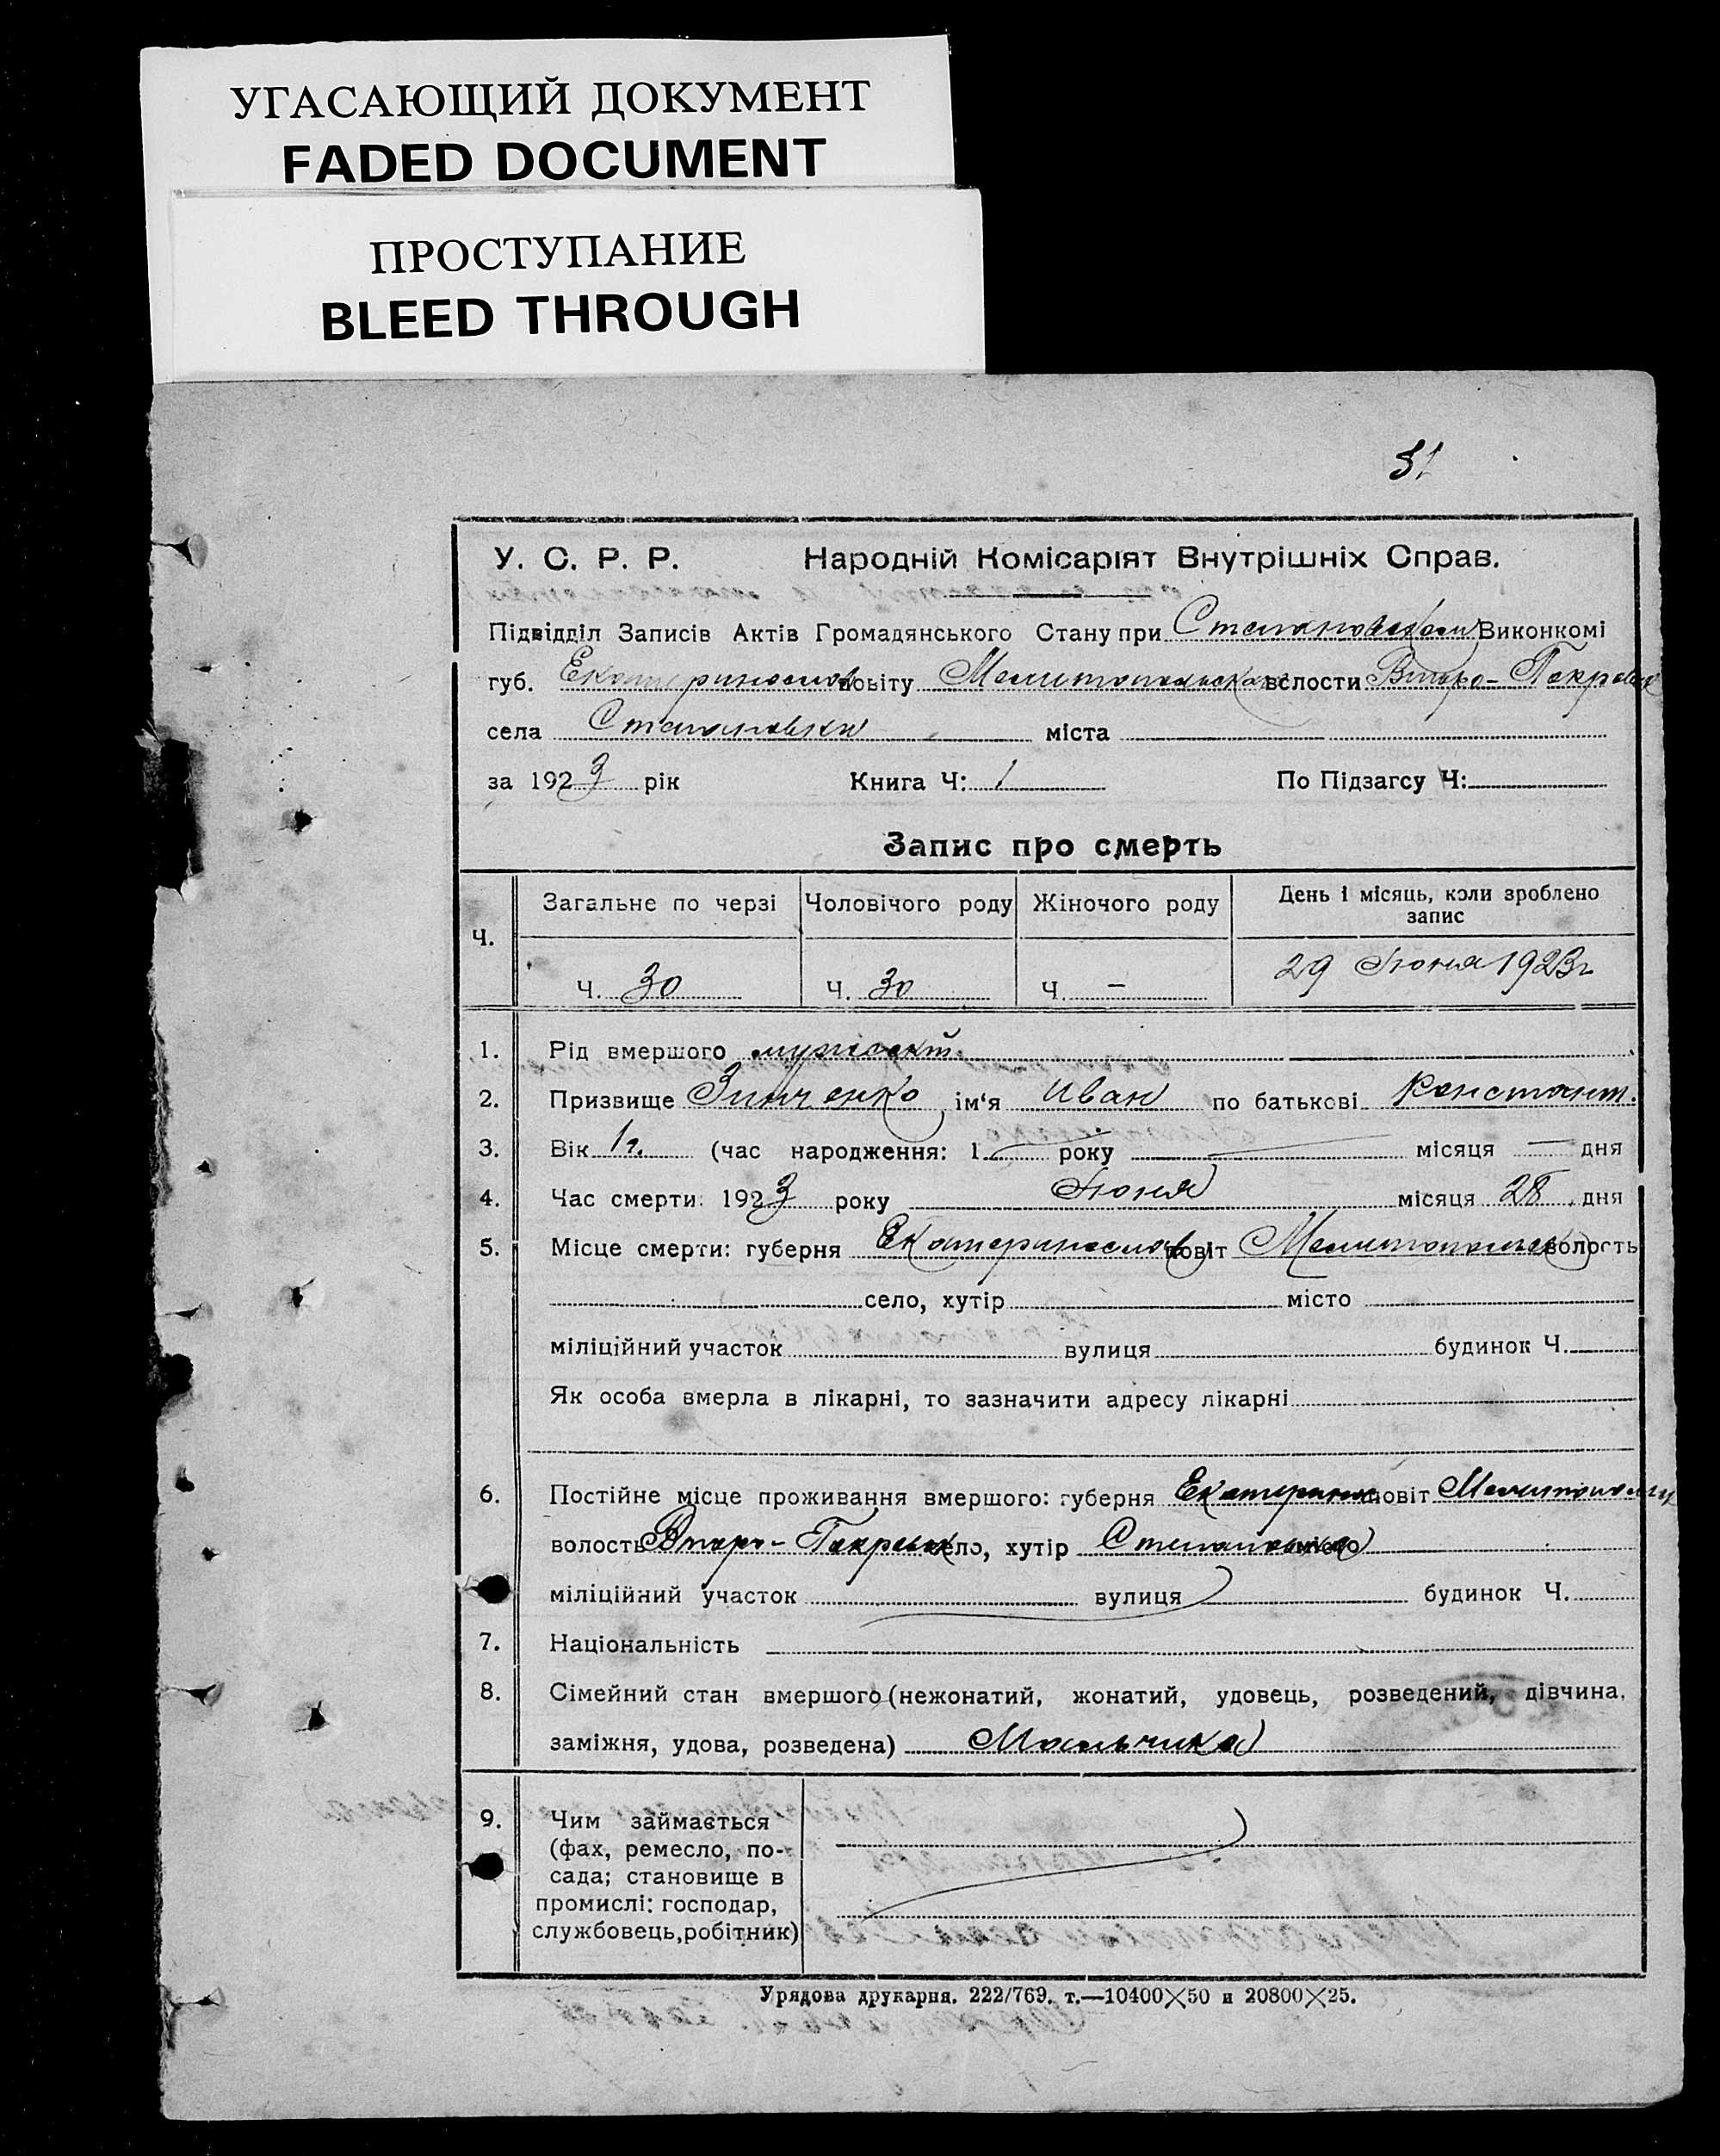 УГАСАЮЩИЙ ДОКУМЕНТ
FADED DOCUMENT
ПРОСТУПАНИЕ
BLEED THROUGH
31
У. С. Р. Р. Народній Комісаріят Внутрішніх Справ.
Підвідділ Записів Актів Громадянського Стану при Степановском Виконкомі
губ. Екатеринослав повіту Мелитопольскаго волости Второ-Покровск
села Степановки міста
за 1923 рік Книга Ч: 1 По Підзагсу Ч:
Запис про смерть
Ч. Загальне по черзі Чоловічого роду Жіночого роду День і місяць, коли зроблено запис
Ч. 30 Ч. 30 Ч. — 29 Июня 1923г
1. Рід вмершого мужеск.
2. Призвище Зинченко ім‘я Иван по батькові Констант.
3. Вік 1г. (час народження: 1 року — місяця — дня
4. Час смерти: 1923 року Июня місяця 28 дня
5. Місце смерти: губерня Екатеринослав повіт Мелитопольск волость
село, хутір місто
міліційний участок вулиця будинок Ч.
Як особа вмерла в лікарні, то зазначити адресу лікарні
6. Постійне місце проживання вмершого: губерня Екатеринос повіт Мелитополь
волость Второ-Покровск село, хутір Степановка місто
міліційний участок вулиця будинок Ч.
7. Національність
8. Сімейний стан вмершого (нежонатий, жонатий, удовець, розведений, дівчина,
заміжня, удова, розведена) Мальчик
9. Чим займається
(фах, ремесло, по-
сада; становище в
промислі: господар,
службовець, робітник)
Урядова друкарня. 222/769. т.—10400×50 и 20800×25.